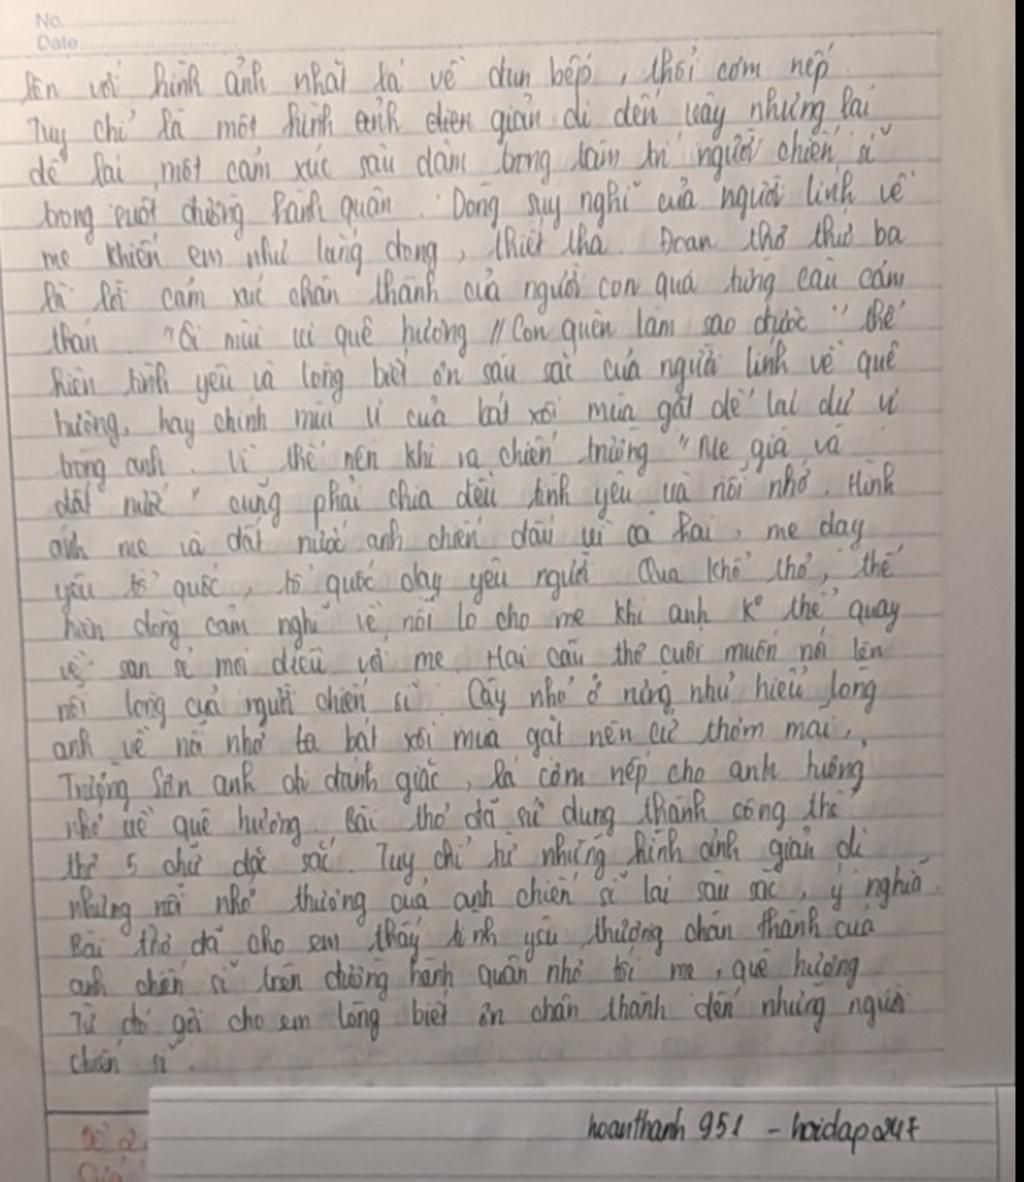 No.
Date
lên với hình ảnh nhặt lá về đun bếp, thổi cơm nếp.
Tuy chỉ là một hình ảnh đơn giản dị đến vậy nhưng lại
để lại một cảm xúc sâu đậm trong tâm trí người chiến sĩ
trong suốt đường hành quân. Dòng suy nghĩ của người lính về
mẹ khiến em như lắng đọng, thiết tha. Đoạn thơ thứ ba
là lời cảm xúc chân thành của người con qua từng câu cảm
thán "Ôi mùi vị quê hương // Con quên làm sao được" thể
hiện tình yêu và lòng biết ơn sâu sắc của người lính về quê
hương, hay chính mùi vị của bát xôi mùa gặt để lại dư vị
trong anh. Vì thế nên khi ra chiến trường "Mẹ già và
đất nước" cũng phải chia đều tình yêu và nỗi nhớ. Hình
ảnh mẹ và đất nước anh chiến đấu vì cả hai, mẹ dạy
yêu tổ quốc, tổ quốc dạy yêu người. Qua khổ thơ, thể
hiện dòng cảm nghĩ về nỗi lo cho mẹ khi anh k° thể quay
về san sẻ mọi điều với mẹ. Hai câu thơ cuối muốn nói lên
nỗi lòng của người chiến sĩ. Cây nhỏ ở rừng như hiểu lòng
anh về nỗi nhớ ta bát xôi mùa gặt nên cứ thơm mãi.
Trường Sơn anh đi đánh giặc, lá cơm nếp cho anh hương
nhớ về quê hương. Bài thơ đã sử dụng thành công thể
thơ 5 chữ đặc sắc. Tuy chỉ từ những hình ảnh giản dị
nhưng nỗi nhớ thương của anh chiến sĩ lại sâu sắc, ý nghĩa.
Bài thơ đã cho em thấy tình yêu thương chân thành của
anh chiến sĩ trên đường hành quân nhớ tới mẹ, quê hương
Từ đó gởi cho em lòng biết ơn chân thành đến những người
chiến sĩ.
hoanthanh 951 - hoidap247